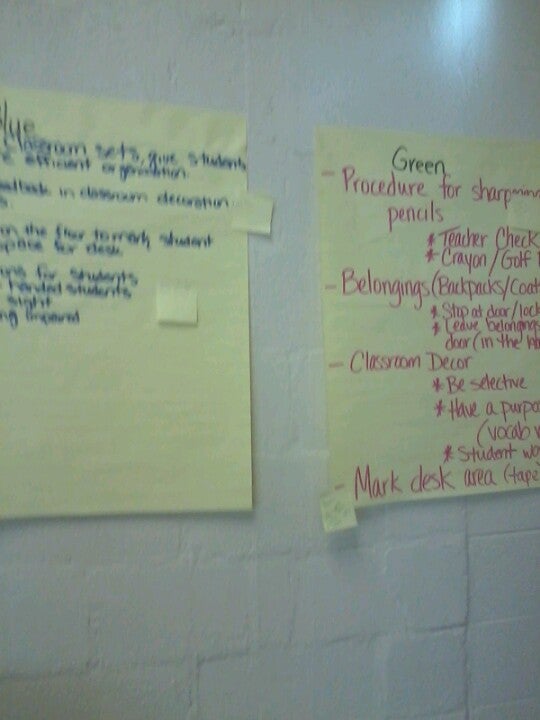 classroom sets, give students
efficient organization
in classroom decoration
on the floor to mark student
space for desk
for students
handed students
sight
impaired
Green
- Procedure for sharpening
pencils
* Teacher Check
* Crayon/Golf
- Belongings (Backpacks/Coat
* Stop at door/lock
* Leave belongings
door (in the
- Classroom Decor
* Be selective
* Have a purpo
(vocab w
* Student wo
- Mark desk area (tape